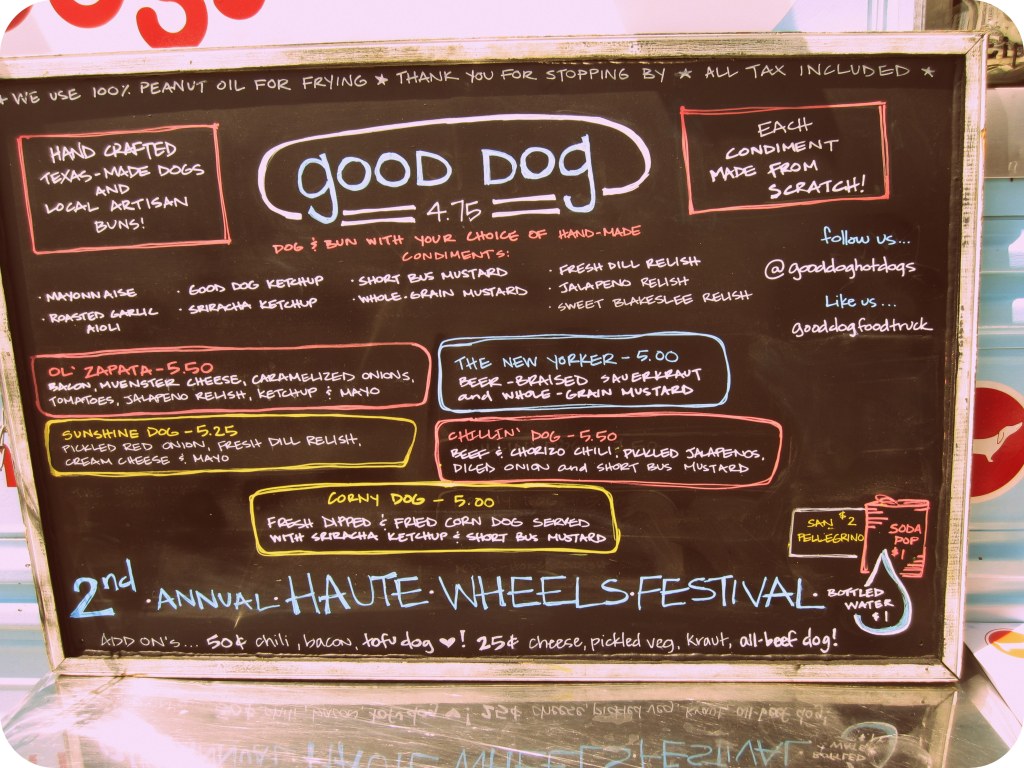 ★ WE USE 100% PEANUT OIL FOR FRYING ★ THANK YOU FOR STOPPING BY ★ ALL TAX INCLUDED ★
HAND CRAFTED
TEXAS-MADE DOGS
AND
LOCAL ARTISAN
BUNS!
GOOD DOG
4.75
EACH
CONDIMENT
MADE FROM
SCRATCH!
DOG & BUN WITH YOUR CHOICE OF HAND-MADE
CONDIMENTS:
· MAYONNAISE
· ROASTED GARLIC
AIOLI
· GOOD DOG KETCHUP
· SRIRACHA KETCHUP
· SHORT BUS MUSTARD
· WHOLE-GRAIN MUSTARD
· FRESH DILL RELISH
· JALAPENO RELISH
· SWEET BLAKESLEE RELISH
follow us...
@gooddoghotdogs
Like us...
gooddogfoodtruck
OL' ZAPATA - 5.50
BACON, MUENSTER CHEESE, CARAMELIZED ONIONS,
TOMATOES, JALAPENO RELISH, KETCHUP & MAYO
THE NEW YORKER - 5.00
BEER-BRAISED SAUERKRAUT
and WHOLE-GRAIN MUSTARD
SUNSHINE DOG - 5.25
PICKLED RED ONION, FRESH DILL RELISH,
CREAM CHEESE & MAYO
CHILLIN' DOG - 5.50
BEEF & CHORIZO CHILI, PICKLED JALAPENOS,
DICED ONION and SHORT BUS MUSTARD
CORNY DOG - 5.00
FRESH DIPPED & FRIED CORN DOG SERVED
WITH SRIRACHA KETCHUP & SHORT BUS MUSTARD
SAN $2
PELLEGRINO
SODA
POP
$1
BOTTLED
WATER
$1
2nd · ANNUAL · HAUTE · WHEELS · FESTIVAL ·
ADD ON'S.... 50¢ chili, bacon, tofu dog ♥! 25¢ cheese, pickled veg, kraut, all-beef dog!